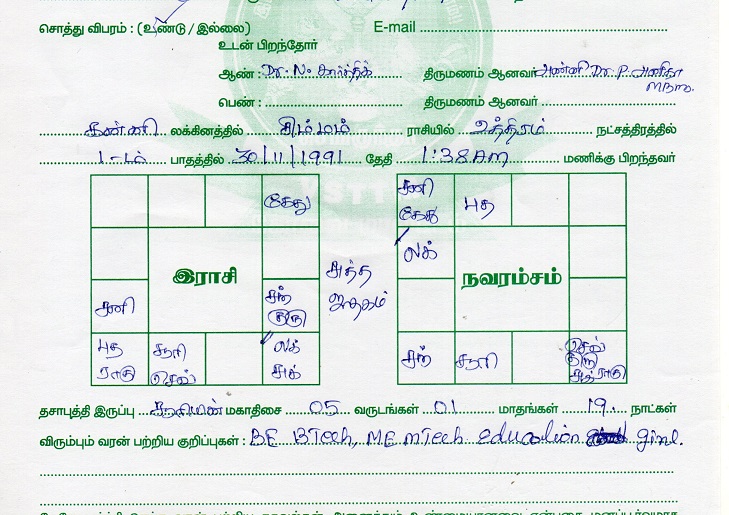 சொத்து விபரம் : (உண்டு / இல்லை) E-mail
உடன் பிறந்தோர்
ஆண் : Dr. N. கார்த்திக் திருமணம் ஆனவர் அண்ணி Dr. P. அனிதா
பெண் : திருமணம் ஆனவர்
கன்னி லக்கினத்தில் சிம்மம் ராசியில் உத்திரம் நட்சத்திரத்தில்
1-டம் பாதத்தில் 30/11/1991 தேதி 1:38AM மணிக்கு பிறந்தவர்
கேது
சனி
கேது
புத
லக்
இராசி
சுத்த
ஜாதகம்
நவாம்சம்
சனி
சந்
குரு
புத
ராகு
சூரி
செவ்
லக்
சுக்
சந்
சூரி
செவ்
குரு
சுக் ராகு
தசாபுத்தி இருப்பு சூரியன் மகாதிசை 05 வருடங்கள் 01 மாதங்கள் 19 நாட்கள்
விரும்பும் வரன் பற்றிய குறிப்புகள் : BE BTech, ME MTech education girl.